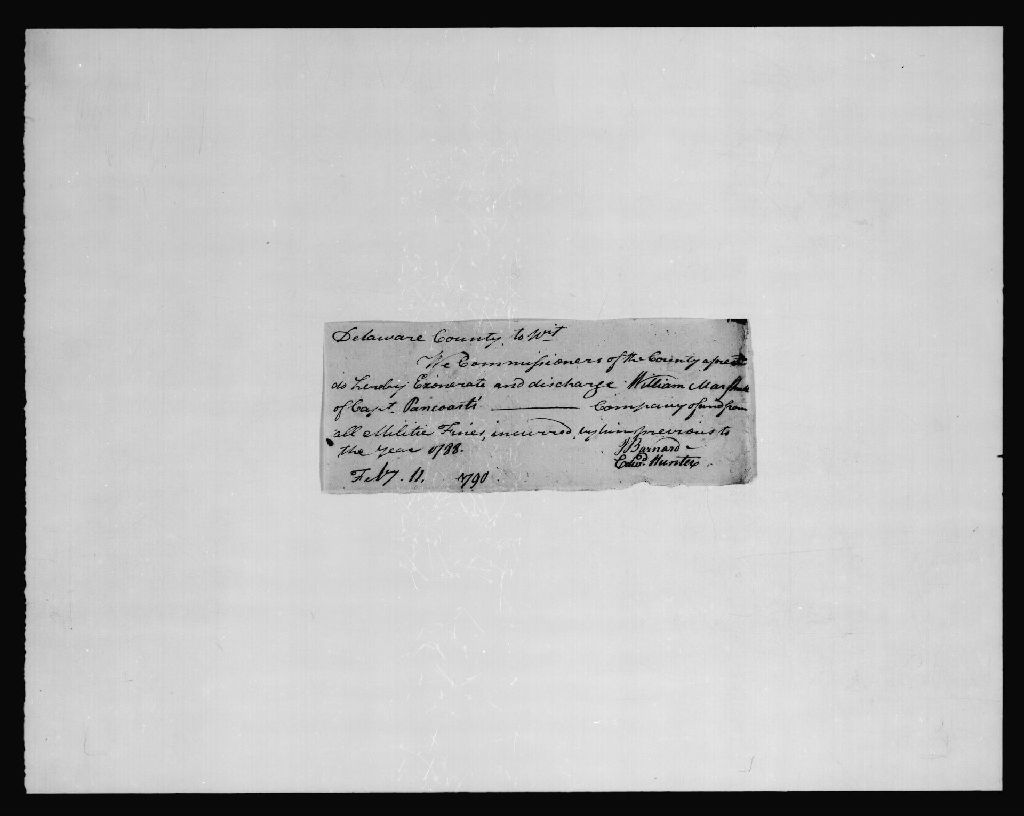 Delaware County, to Wit
We Commissioners of the County aforesd
do hereby Exonerate and discharge William Marshall
of Capt. Pancoasts ——— Company of and from
all Militia Fines, incurred, by him previous to
the Year 1788.
J Barnard
Edwd. Hunter
Feby. 11. 1790